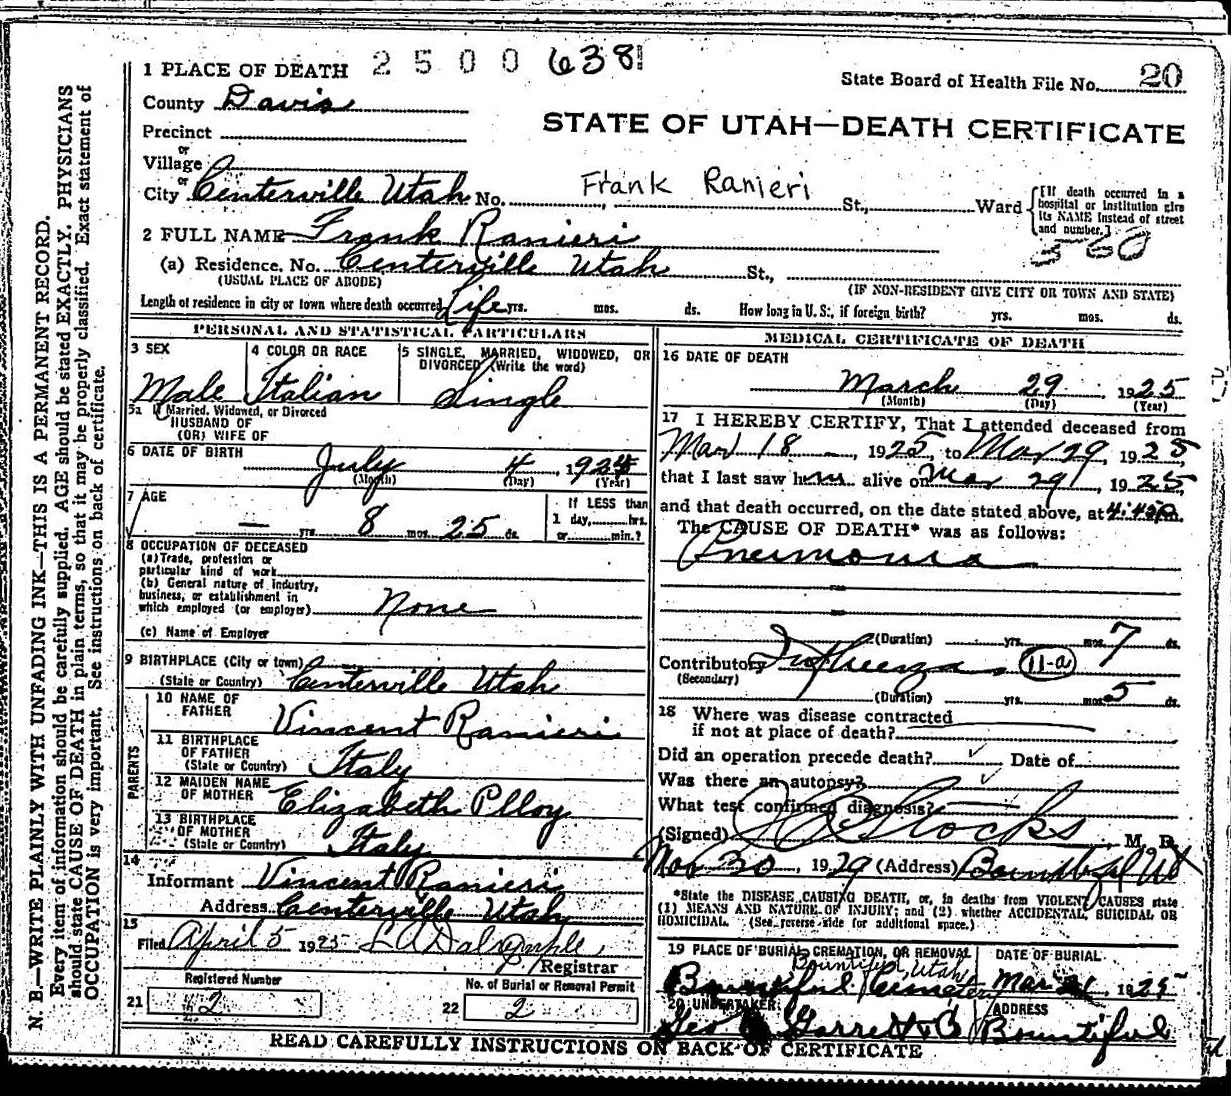 N. B.—WRITE PLAINLY WITH UNFADING INK—THIS IS A PERMANENT RECORD.
Every item of information should be carefully supplied. AGE should be stated EXACTLY. PHYSICIANS
should state CAUSE OF DEATH in plain terms, so that it may be properly classified. Exact statement of
OCCUPATION is very important. See instructions on back of certificate.
2500 638
State Board of Health File No. 20
1 PLACE OF DEATH
County Davis
STATE OF UTAH—DEATH CERTIFICATE
Precinct
or
Village
or
City Centerville Utah No. Frank Ranieri St., Ward
[If death occurred in a
hospital or institution give
its NAME instead of street
and number.]
560
2 FULL NAME Frank Ranieri
(a) Residence. No. Centerville Utah St.,
(USUAL PLACE OF ABODE) (IF NON-RESIDENT GIVE CITY OR TOWN AND STATE)
Length of residence in city or town where death occurred Life yrs. mos. ds. How long in U. S., if foreign birth? yrs. mos. ds.
PERSONAL AND STATISTICAL PARTICULARS
3 SEX
Male
4 COLOR OR RACE
Italian
5 SINGLE, MARRIED, WIDOWED, OR
DIVORCED (Write the word)
Single
5a If Married, Widowed, or Divorced
HUSBAND OF
(OR) WIFE OF
6 DATE OF BIRTH
July 4, 1924
(Month) (Day) (Year)
7 AGE
— yrs. 8 mos. 25 ds.
If LESS than
1 day,......hrs.
or......min.?
8 OCCUPATION OF DECEASED
(a) Trade, profession or
particular kind of work
(b) General nature of industry,
business, or establishment in
which employed (or employer) None
(c) Name of Employer
9 BIRTHPLACE (City or town)
(State or Country) Centerville Utah
PARENTS
10 NAME OF
FATHER Vincent Ranieri
11 BIRTHPLACE
OF FATHER
(State or Country) Italy
12 MAIDEN NAME
OF MOTHER Elizabeth Plloy
13 BIRTHPLACE
OF MOTHER
(State or Country) Italy
14
Informant Vincent Ranieri
Address Centerville Utah
15
Filed April 5 1925 L A Dalrymple
Registrar
Registered Number
21 2
No. of Burial or Removal Permit
22 2
MEDICAL CERTIFICATE OF DEATH
16 DATE OF DEATH
March 29 1925
(Month) (Day) (Year)
17 I HEREBY CERTIFY, That I attended deceased from
Mar 18, 1925, to Mar 29, 1925,
that I last saw him alive on Mar 29, 1925,
and that death occurred, on the date stated above, at 4:45 p.m.
The CAUSE OF DEATH* was as follows:
Pneumonia
(Duration) yrs. mos. 7 ds.
Contributory Influenza 11-a
(Secondary)
(Duration) yrs. mos. 5 ds.
18 Where was disease contracted
if not at place of death?
Did an operation precede death? ✓ Date of
Was there an autopsy? ✓
What test confirmed diagnosis?
(Signed) Stocks, M. D.
Nov 30, 1929 (Address) Bountiful Ut
*State the DISEASE CAUSING DEATH, or, in deaths from VIOLENT CAUSES state
(1) MEANS AND NATURE OF INJURY; and (2) whether ACCIDENTAL, SUICIDAL OR
HOMICIDAL. (See reverse side for additional space.)
19 PLACE OF BURIAL, CREMATION, OR REMOVAL
Bountiful, Utah
Bountiful Cemetery
DATE OF BURIAL
Mar 1925
20 UNDERTAKER
Geo Garrett
ADDRESS
Bountiful
READ CAREFULLY INSTRUCTIONS ON BACK OF CERTIFICATE